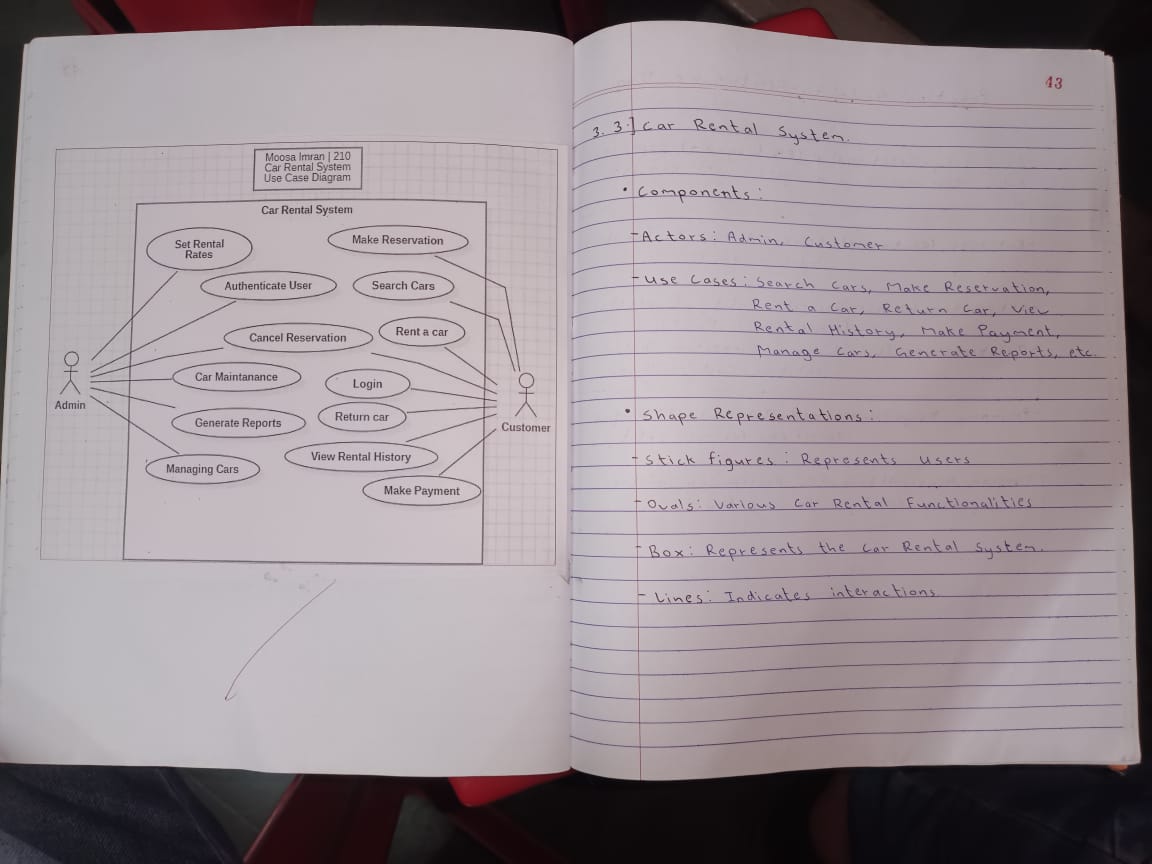 Moosa Imran | 210
Car Rental System
Use Case Diagram
Car Rental System
Set Rental
Rates
Make Reservation
Authenticate User
Search Cars
Cancel Reservation
Rent a car
Car Maintanance
Login
Generate Reports
Return car
Managing Cars
View Rental History
Make Payment
Admin
Customer
43
3.3.] Car Rental System.
• Components:
- Actors: Admin, Customer
- Use Cases: Search Cars, Make Reservation,
Rent a Car, Return Car, View
Rental History, Make Payment,
Manage Cars, Generate Reports, etc.
• Shape Representations:
- Stick figures: Represents users
- Ovals: Various Car Rental Functionalities
- Box: Represents the Car Rental System.
- Lines: Indicates interactions.